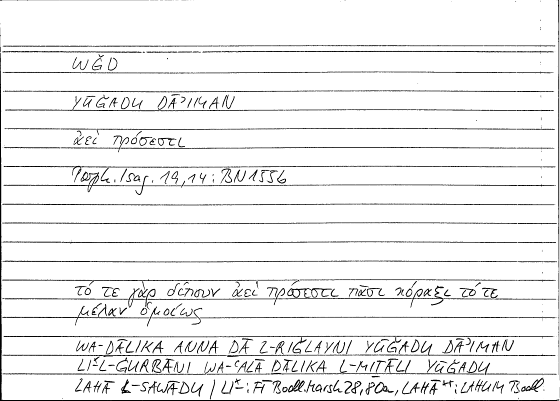 WǦD
YŪǦADU DĀʾIMAN
ἀεὶ πρόσεστι
Porph. Isag. 19,14: BN1556
τό τε γὰρ δίπουν ἀεὶ πρόσεστι πᾶσι κόραξι τό τε
μέλαν ὁμοίως
WA-ḎĀLIKA ANNA ḎĀ L-RIǦLAYNI YŪǦADU DĀʾIMAN
LI*L-ĠURBĀNI WA-ʿALĀ ḎĀLIKA L-MIṮĀLI YŪǦADU
LAHĀ L-SAWĀDU / LI*: FĪ Bodl. Marsh 28, 80a, LAHĀ**: LAHUM Bodl.